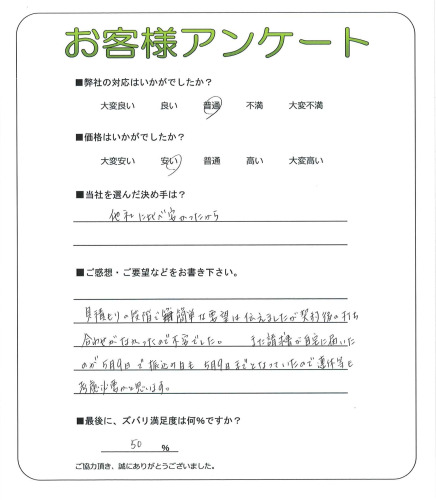 お客様アンケート
■弊社の対応はいかがでしたか?
大変良い 良い 普通 不満 大変不満
■価格はいかがでしたか?
大変安い 安い 普通 高い 大変高い
■当社を選んだ決め手は?
他社に比べ安かったから
■ご感想・ご要望などをお書き下さい。
見積もりの段階で簡単な要望は伝えましたが契約後の打ち
合わせがなかったので不安でした。 また請求書が自宅に届いた
のが5月9日で振込の日も5月9日までとなっていたので
必要かと思います。
■最後に、ズバリ満足度は何%ですか?
50 %
ご協力頂き、誠にありがとうございました。